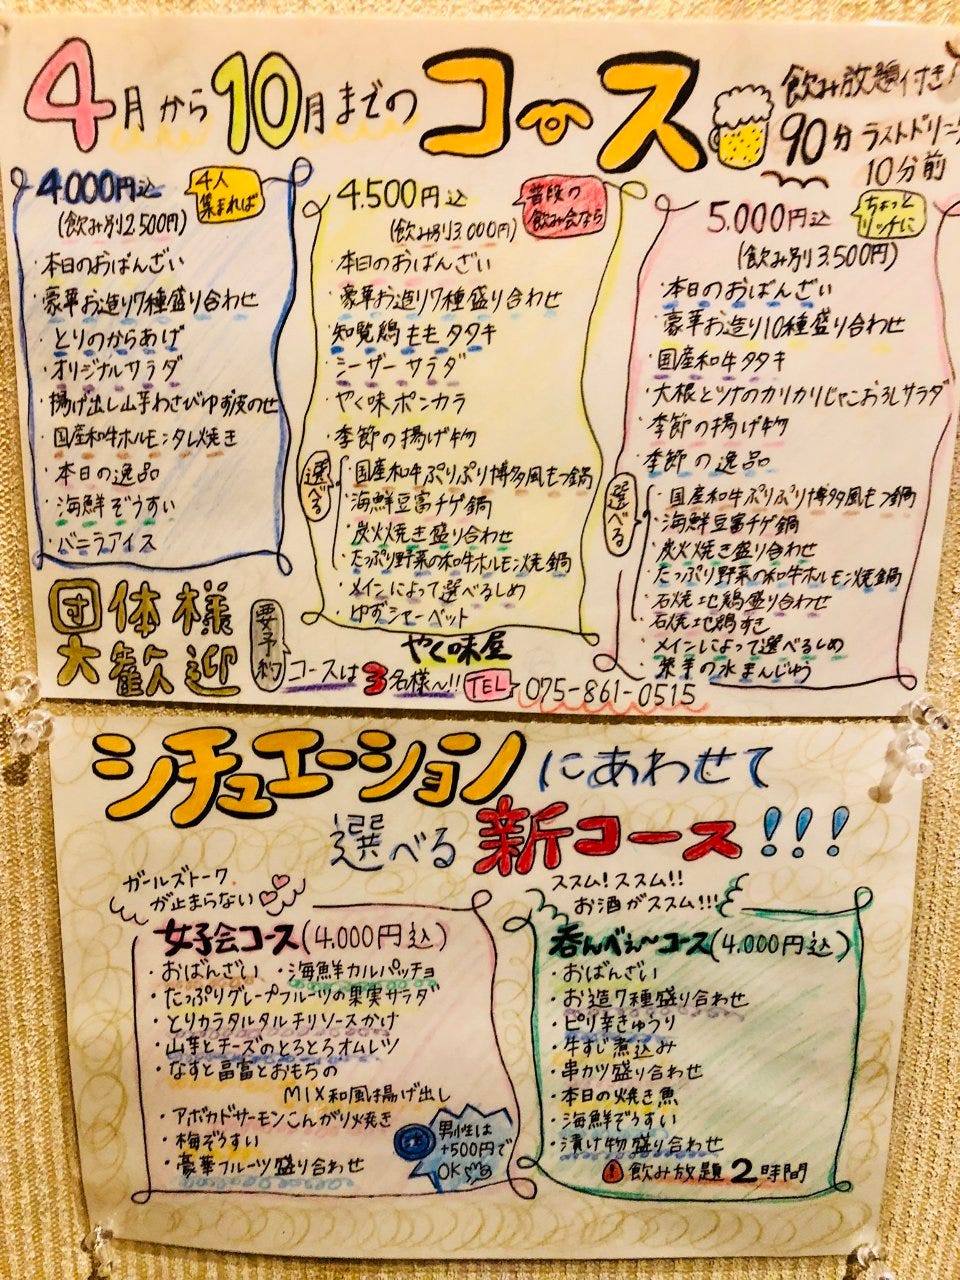 4月から10月までのコース
飲み放題付き!
90分 ラストドリンク
10分前
4000円込
4人
集まれば
(飲み別2,500円)
・本日のおばんざい
・豪華お造り7種盛り合わせ
・とりのからあげ
・オリジナルサラダ
・揚げ出し山芋わさびゆず皮のせ
・国産和牛ホルモンタレ焼き
・本日の逸品
・海鮮ぞうすい
・バニラアイス
4.500円込
普段の
飲み会なら
(飲み別3,000円)
・本日のおばんざい
・豪華お造り7種盛り合わせ
・知覧鶏ももタタキ
・シーザーサラダ
・やく味ポンカラ
・季節の揚げ物
選べる
・国産和牛ぷりぷり博多風もつ鍋
・海鮮豆富チゲ鍋
・炭火焼き盛り合わせ
・たっぷり野菜の和牛ホルモン焼鍋
・メインによって選べるしめ
・ゆずシャーベット
5.000円込
ちょっと
リッチに
(飲み別3,500円)
・本日のおばんざい
・豪華お造り10種盛り合わせ
・国産和牛タタキ
・大根とツナのカリカリじゃこおろしサラダ
・季節の揚げ物
・季節の逸品
選べる
・国産和牛ぷりぷり博多風もつ鍋
・海鮮豆富チゲ鍋
・炭火焼き盛り合わせ
・たっぷり野菜の和牛ホルモン焼鍋
・石焼地鶏盛り合わせ
・石焼地鶏すき
・メインによって選べるしめ
・葉芋の水まんじゅう
団体様
大歓迎
要予約
やく味屋
コースは3名様〜!! TEL 075-861-0515
シチュエーションにあわせて
選べる新コース!!!
ガールズトーク
が止まらない
女子会コース(4.000円込)
・おばんざい ・海鮮カルパッチョ
・たっぷりグレープフルーツの果実サラダ
・とりカラタルタルチリソースかけ
・山芋とチーズのとろとろオムレツ
・なすと富とおもちの
MIX和風揚げ出し
・アボカドサーモンこんがり焼き
・梅ぞうすい
・豪華フルーツ盛り合わせ
男性は
+500円で
OK
ススム!ススム!!
お酒がススム!!!
呑んべぇ〜コース(4.000円込)
・おばんざい
・お造7種盛り合わせ
・ピリ辛きゅうり
・牛すじ煮込み
・串カツ盛り合わせ
・本日の焼き魚
・海鮮ぞうすい
・漬け物盛り合わせ
飲み放題2時間